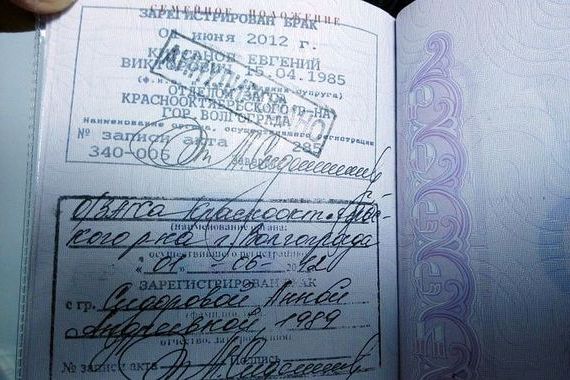 СЕМЕЙНОЕ ПОЛОЖЕНИЕ
ЗАРЕГИСТРИРОВАН БРАК
01 июня 2012 г.
ЕВГЕНИЙ
15.04.1985
ОТДЕЛОМ
КРАСНООКТЯБРЬСКОГО Р-НА
ГОР. ВОЛГОГРАДА
наименование органа, осуществившего регистрацию
№ записи акта 285
340-006
О/ЗАГСа Краснооктябрьс-
кого р-на г. Волгограда
(наименование органа,
осуществившего регистрацию)
"01" - 06 - 2012
ЗАРЕГИСТРИРОВАН БРАК
с гр. Сидоровой Анной
Андреевной, 1989
отчество, дата рождения
№ записи акта Подпись